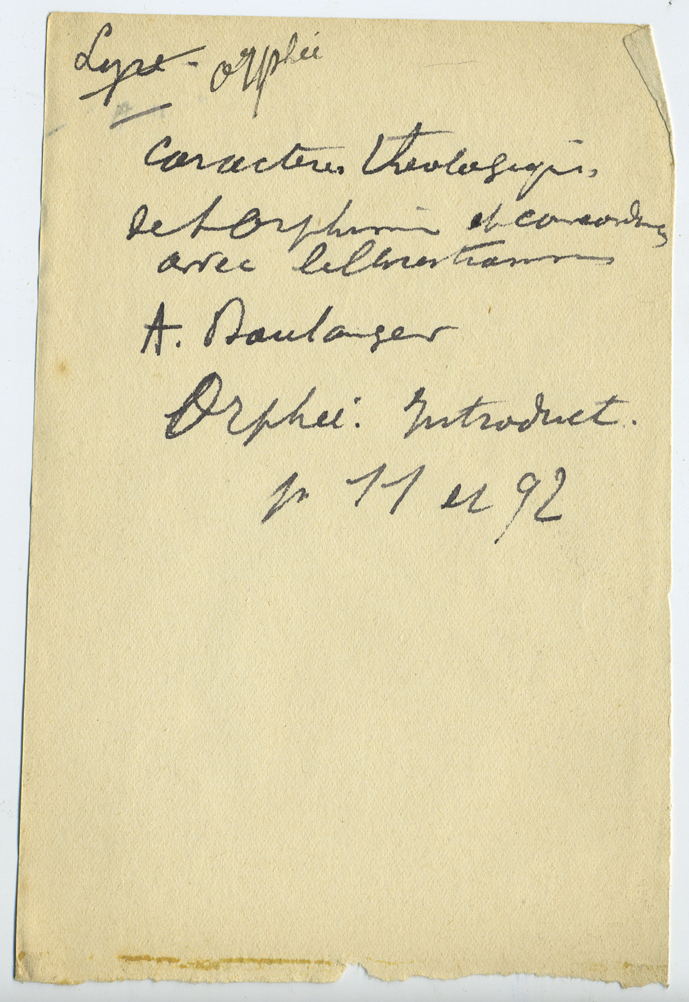 Lyre - Orphée
Caractères théologiques
de l'Orphisme et concordances
avec le Christianisme
A. Boulanger
Orphée. Introduct.
p 11 et 92